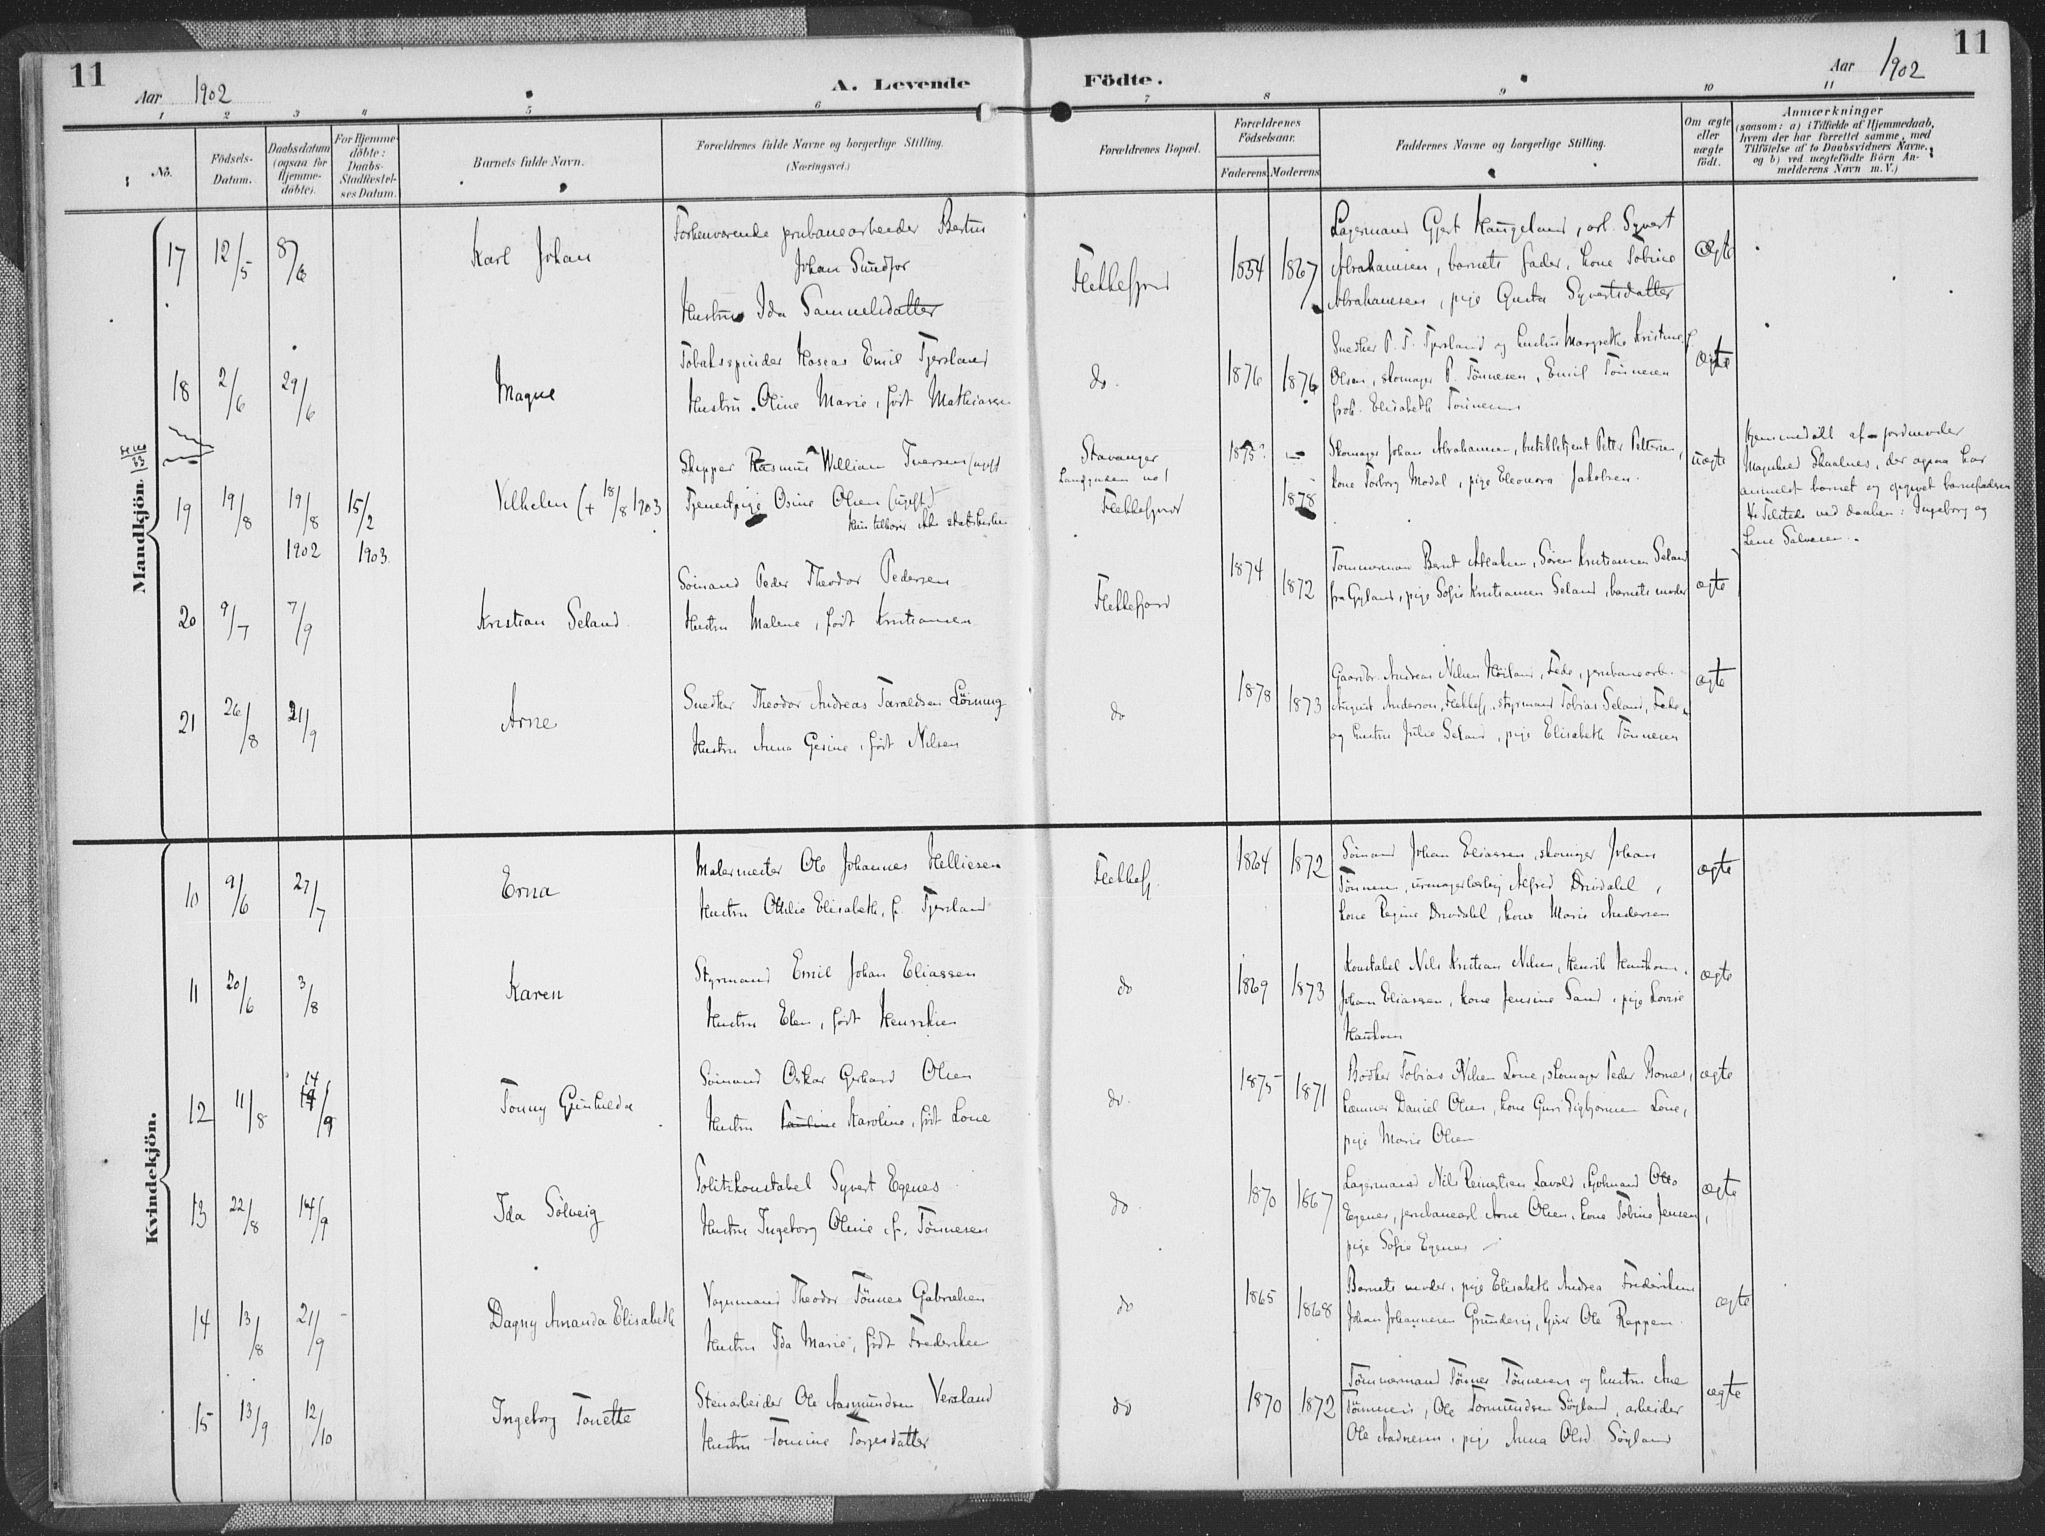 11
Aar 1902
A. Levende Födte.
Aar 1902
11
1 2 3 4 5 6 7 8 9 10 11
No.
Födsels-Datum.
Daabsdatum (ogsaa for Hjemme-döbte).
For Hjemme-döbte: Daabs-Stadfæstel-ses Datum.
Barnets fulde Navn.
Forældrenes fulde Navne og borgerlige Stilling.
(Næringsvei.)
Forældrenes Bopæl.
Forældrenes Födselsaar.
Faderens. Moderens.
Faddernes Navne og borgerlige Stilling.
Om ægte eller uægte födt.
Anmærkninger
(saasom: a) i Tilfælde af Hjemmedaab,
hvem der har forrettet samme, med
Tilföielse af to Daabsvidners Navne,
og b) ved uægtefödte Börn An-
melderens Navn m. V.)
Mandkjön.
17 12/5 8/6 Karl Johan
Forhenværende jernbanearbeider Bertin
Johan Sundfor
Hustru Ida Samuelsdatter
Flekkefjord 1854 1867
Lagermand Gjert Haugeland, arb. Syvert
Abrahamsen, barnets fader, kone Tobine
Abrahamsen, pige Gusta Syvertsdatter
ægte
18 2/6 29/6 Magne
Tobakspinder Hoseas Emil Tjersland
Hustru Oline Marie, født Mathiasen
do. 1876 1876
Snedker P. T. Tjersland og hustru Margrethe Kristine f.
Olsen, skomager P. Tönnesen, Emil Tönnesen
frøk. Elisabeth Tönnesen
ægte
19 19/8 19/8 1902 15/2 1903 Vilhelm (+ 18/8 1903
Skipper Rasmus William Iversen (ugift
Tjenestpige Osine Olsen (ugift)
Stavanger
Flekkefjord
1875? 1878
Skomager Johan Abrahamsen, Petter Pettersen,
kone Torborg Modal, pige Eleonora Jakobsen.
uægte
Hjemmedøbt af jordmoder
Magnhild Skaalnes, der ogsaa har
anmeldt barnet og opgivet barnefaderen
Tilstede ved daaben: Ingeborg og
Lene Salvesen.
20 9/7 7/9 Kristian Seland
Sömand Peder Theodor Pedersen
Hustru Malene, født Kristiansen
Flekkefjord 1874 1872
Tømmermand Bernt Sören Kristiansen Seland
fra Gyland, pige Sofie Kristiansen Seland, barnets moder
ægte
21 26/8 21/9 Arne
Snedker Theodor Andreas Taraldsen Löining
Hustru Anna Gesine, født Nilsen
do 1878 1873
Gaardbr. Andreas Nilsen Höiland, Fede, jernbanearb.
August Anderson, Flekkefj., styrmand Tobias Seland,
og hustru Julie Seland, pige Elisabeth Tönnesen
ægte
Kvindekjön.
10 9/6 27/7 Erna
Malermester Ole Johannes Helliesen
Hustru Othilie Elisabeth, f. Tjersland
Flekkefj. 1864 1872
Sömand Johan Eliassen, skomager Johan
Tönnesen, urmagerlærling Alfred Drivdahl,
kone Regine Drivdahl, kone Marie Andersen
ægte
11 20/6 3/8 Karen
Styrmand Emil Johan Eliassen
Hustru Elen, født Henriksen
do 1869 1873
Konstabel Nils Kristian Nilsen, Henrik
Johan Eliassen, kone Jensine Sand, pige Lovise
ægte
12 11/8 14/9 Tonny Gunhilda
Sömand Oskar Gerhard Olsen
Hustru Pauline Karoline, født Lone
do. 1875 1871
Bödker Tobias Nilsen Lone, skomager Peder
Daniel Olsen, kone Guri Sigbjørnsen Lone,
pige Marie Olsen
ægte
13 22/8 14/9 Ida Solveig
Politikonstabel Syvert Egenes
Hustru Ingeborg Oline f. Tönnesen
do. 1870 1867
Lagermand Nils Reinertsen Lavold, Otto
Egenes, jernbanearb. Arne Olsen, kone Tobine Jensen,
pige Sofie Egenes
ægte
14 13/8 21/9 Dagny Amanda Elisabeth
Vognmand Theodor Tönnes Gabrielsen
Hustru Ida Marie, født Frederiksen
do 1865 1868
Barnets moder, pige Elisabeth Andrea Frederiksen
Johan Johannesen Grundvig, Ole Reppen.
ægte
15 13/9 12/10 Ingeborg Tonette
Stenarbeider Ole Aasmundsen Versland
Hustru Tomine Torgersdatter
do 1870 1872
Tömmermand Tönnes Tönnesen og hustru Ane
Tönnesen, Ole Tormundsen Söyland, arbeider
Ole Aadnesen, pige Anna Olsd. Söyland
ægte